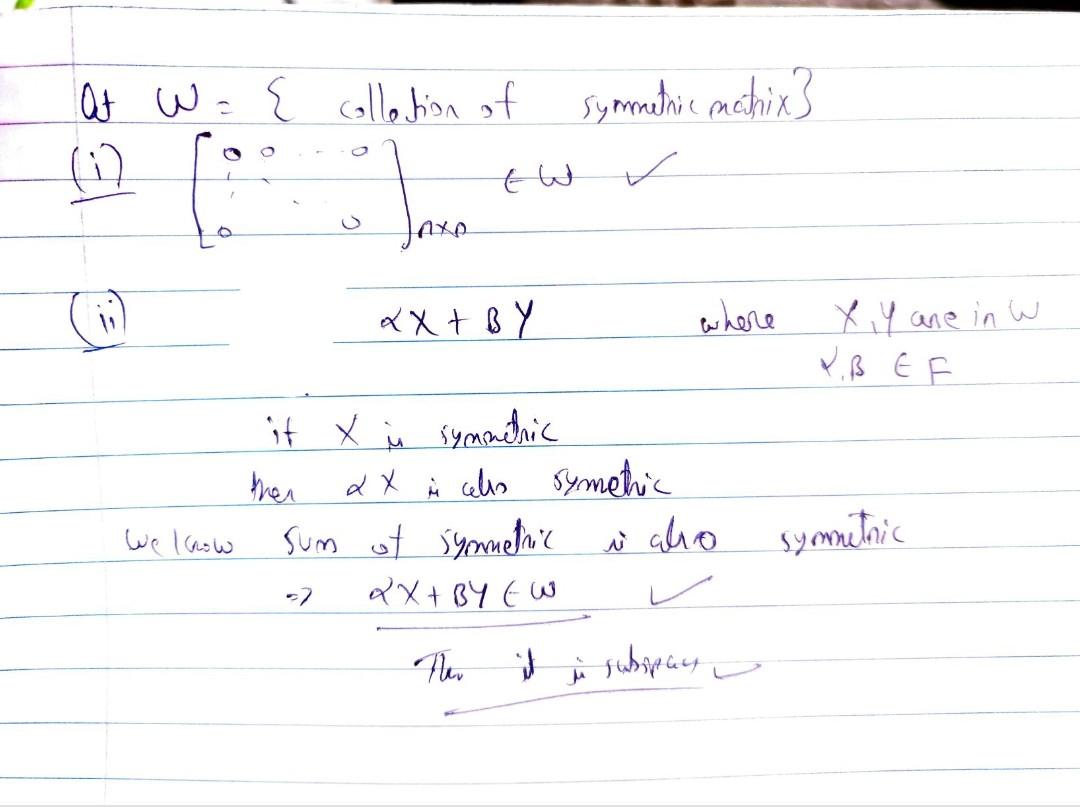 At W = { collection of symmetric matrix}
(i) [0 0 ... 0
0 0]nxn ∈ W ✓
(ii) αX + βY where X, Y are in W
α, β ∈ F
if X is symmetric
then αX is also symetric
We know sum of symmetric is also symmetric
=> αX + βY ∈ W ✓
Then it is subspace ✓